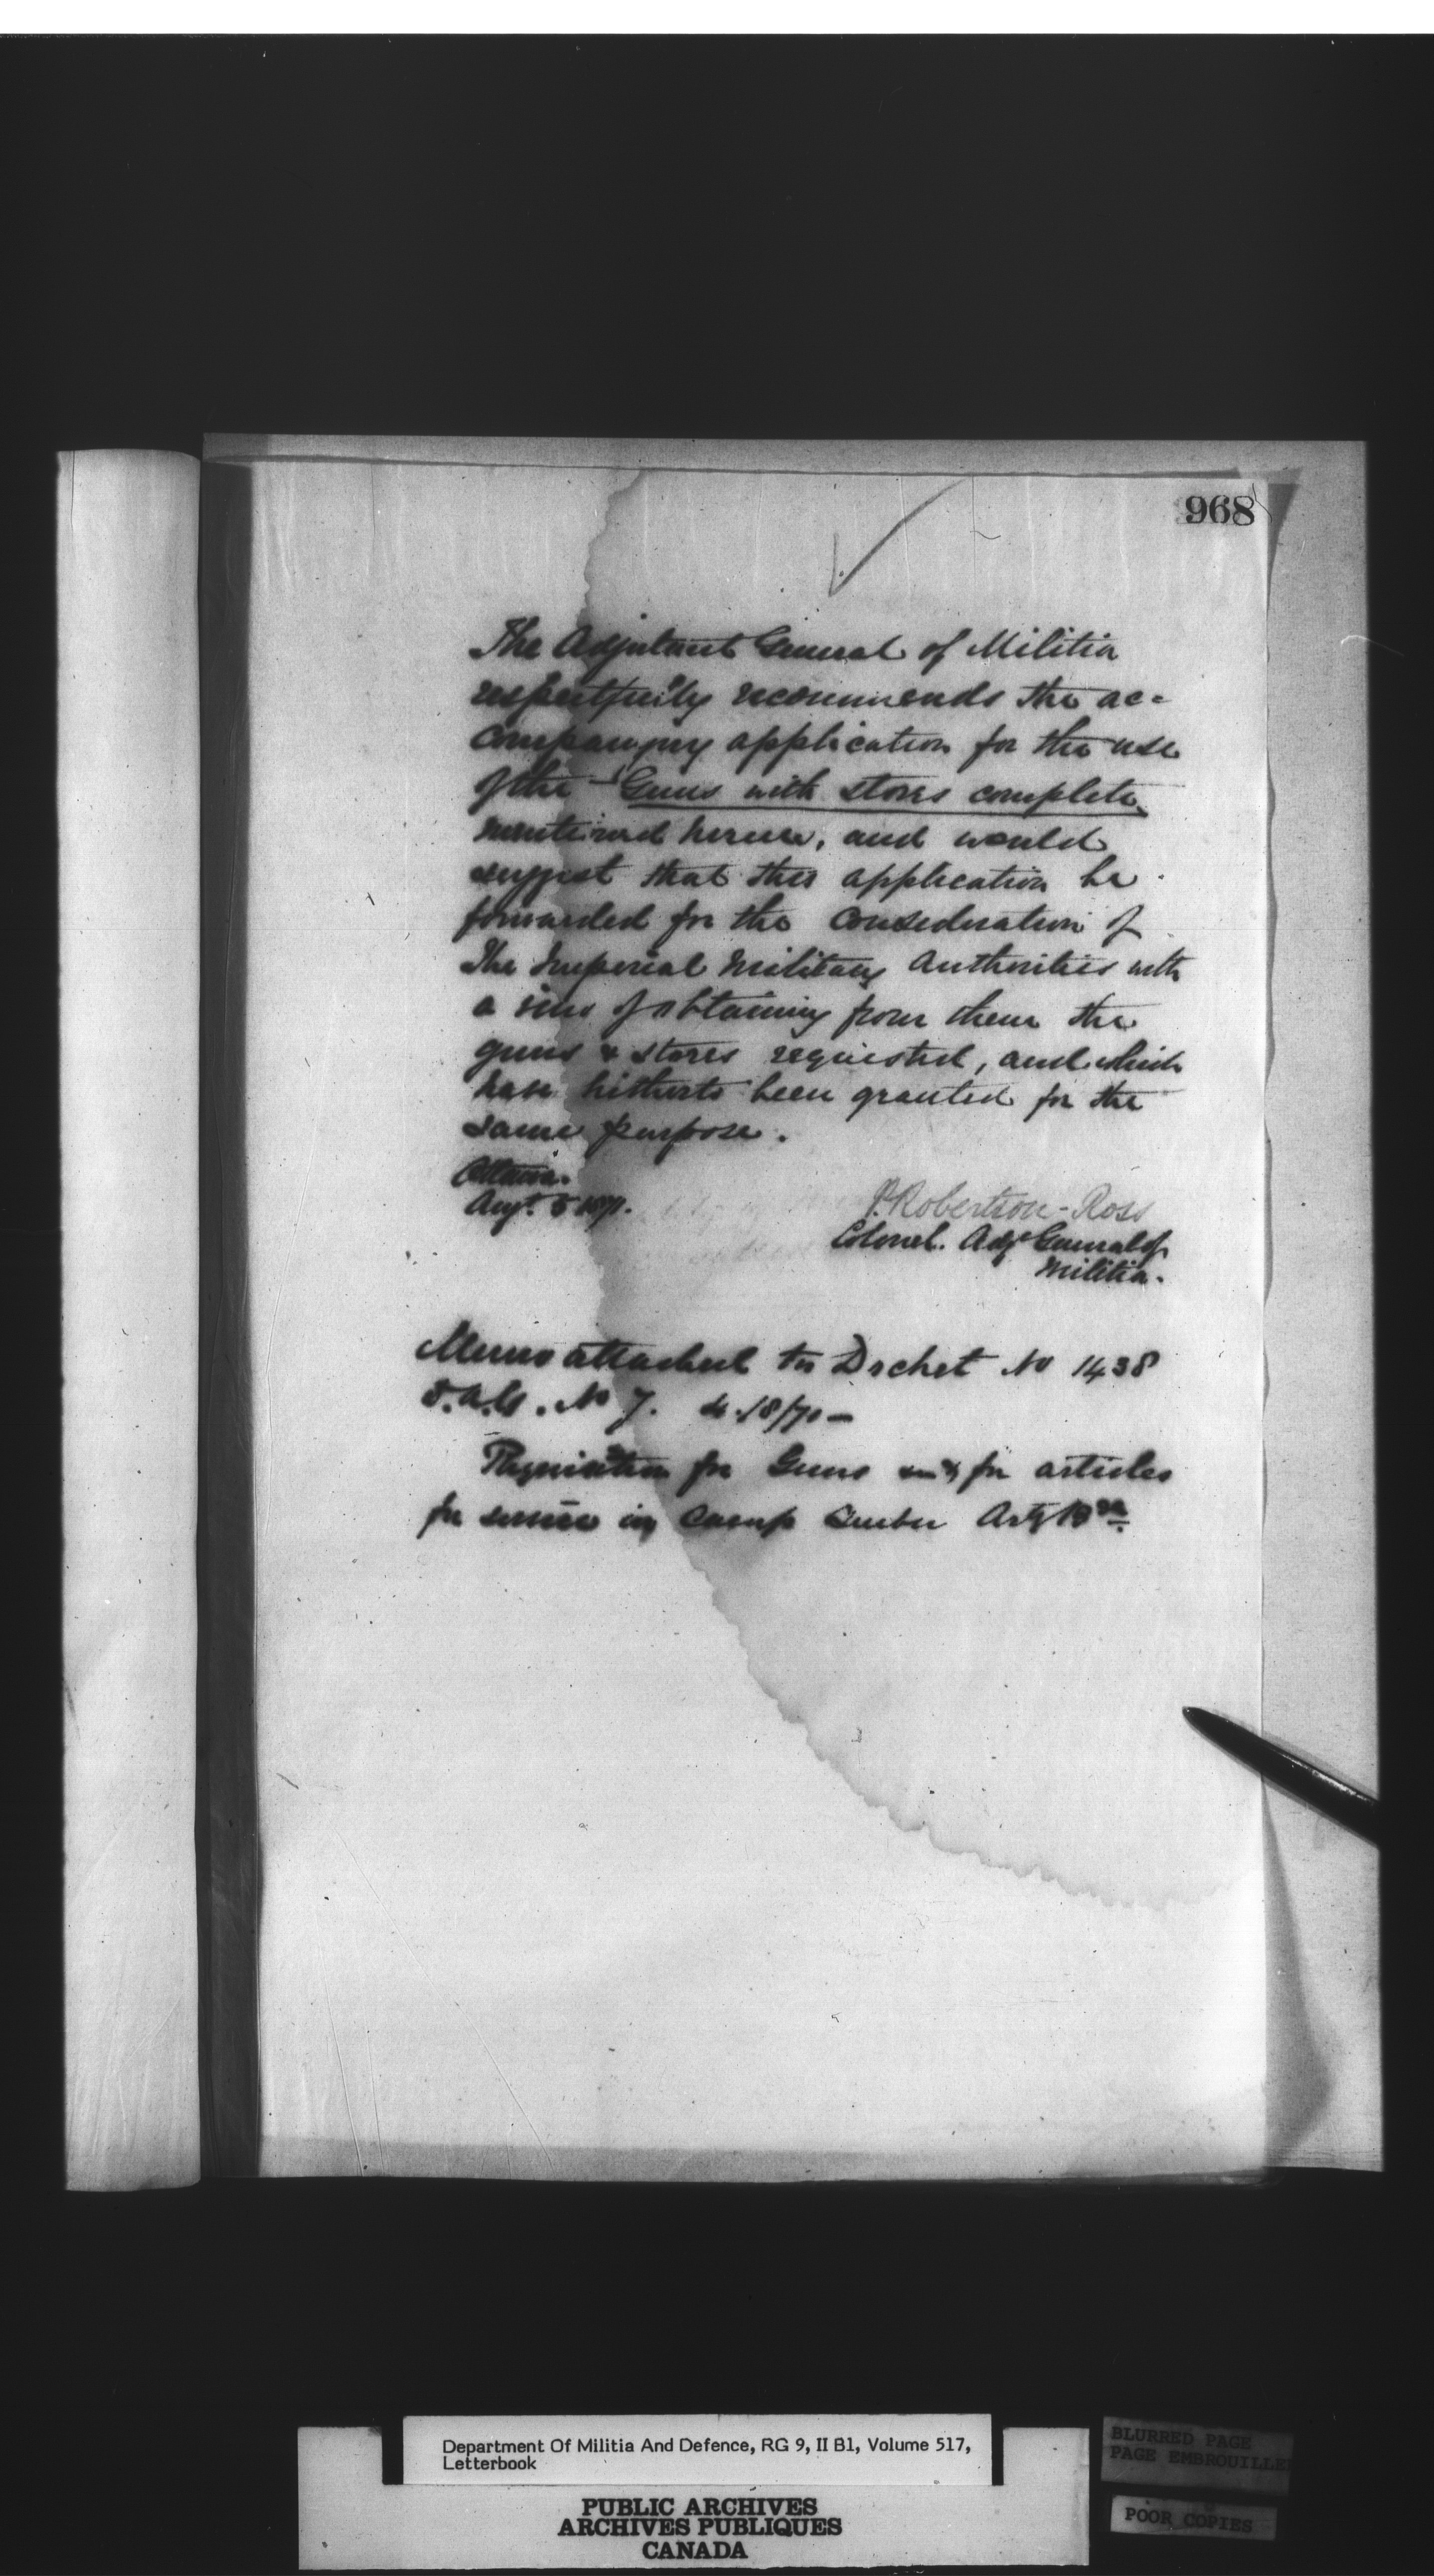 968
The Adjutant General of Militia
respectfully recommends the ac=
companying application for the use
of the Guns with stores complete
mentioned herein, and would
suggest that this application be
forwarded for the consideration of
The Imperial Military Authorities with
a view of obtaining from them the
guns & stores requested, and which
have hitherto been granted for the
same purpose.
Ottawa.
Augt. 5
P. Robertson-Ross
Colonel. Adjt General of
Militia.
Memo attached to Docket No 1438
No 7.
Requisition for Guns for articles
for service in Camp Arty
Department Of Militia And Defence, RG 9, II B1, Volume 517,
Letterbook
PUBLIC ARCHIVES
ARCHIVES PUBLIQUES
CANADA
BLURRED PAGE
PAGE EMBROUILLE
POOR COPIES